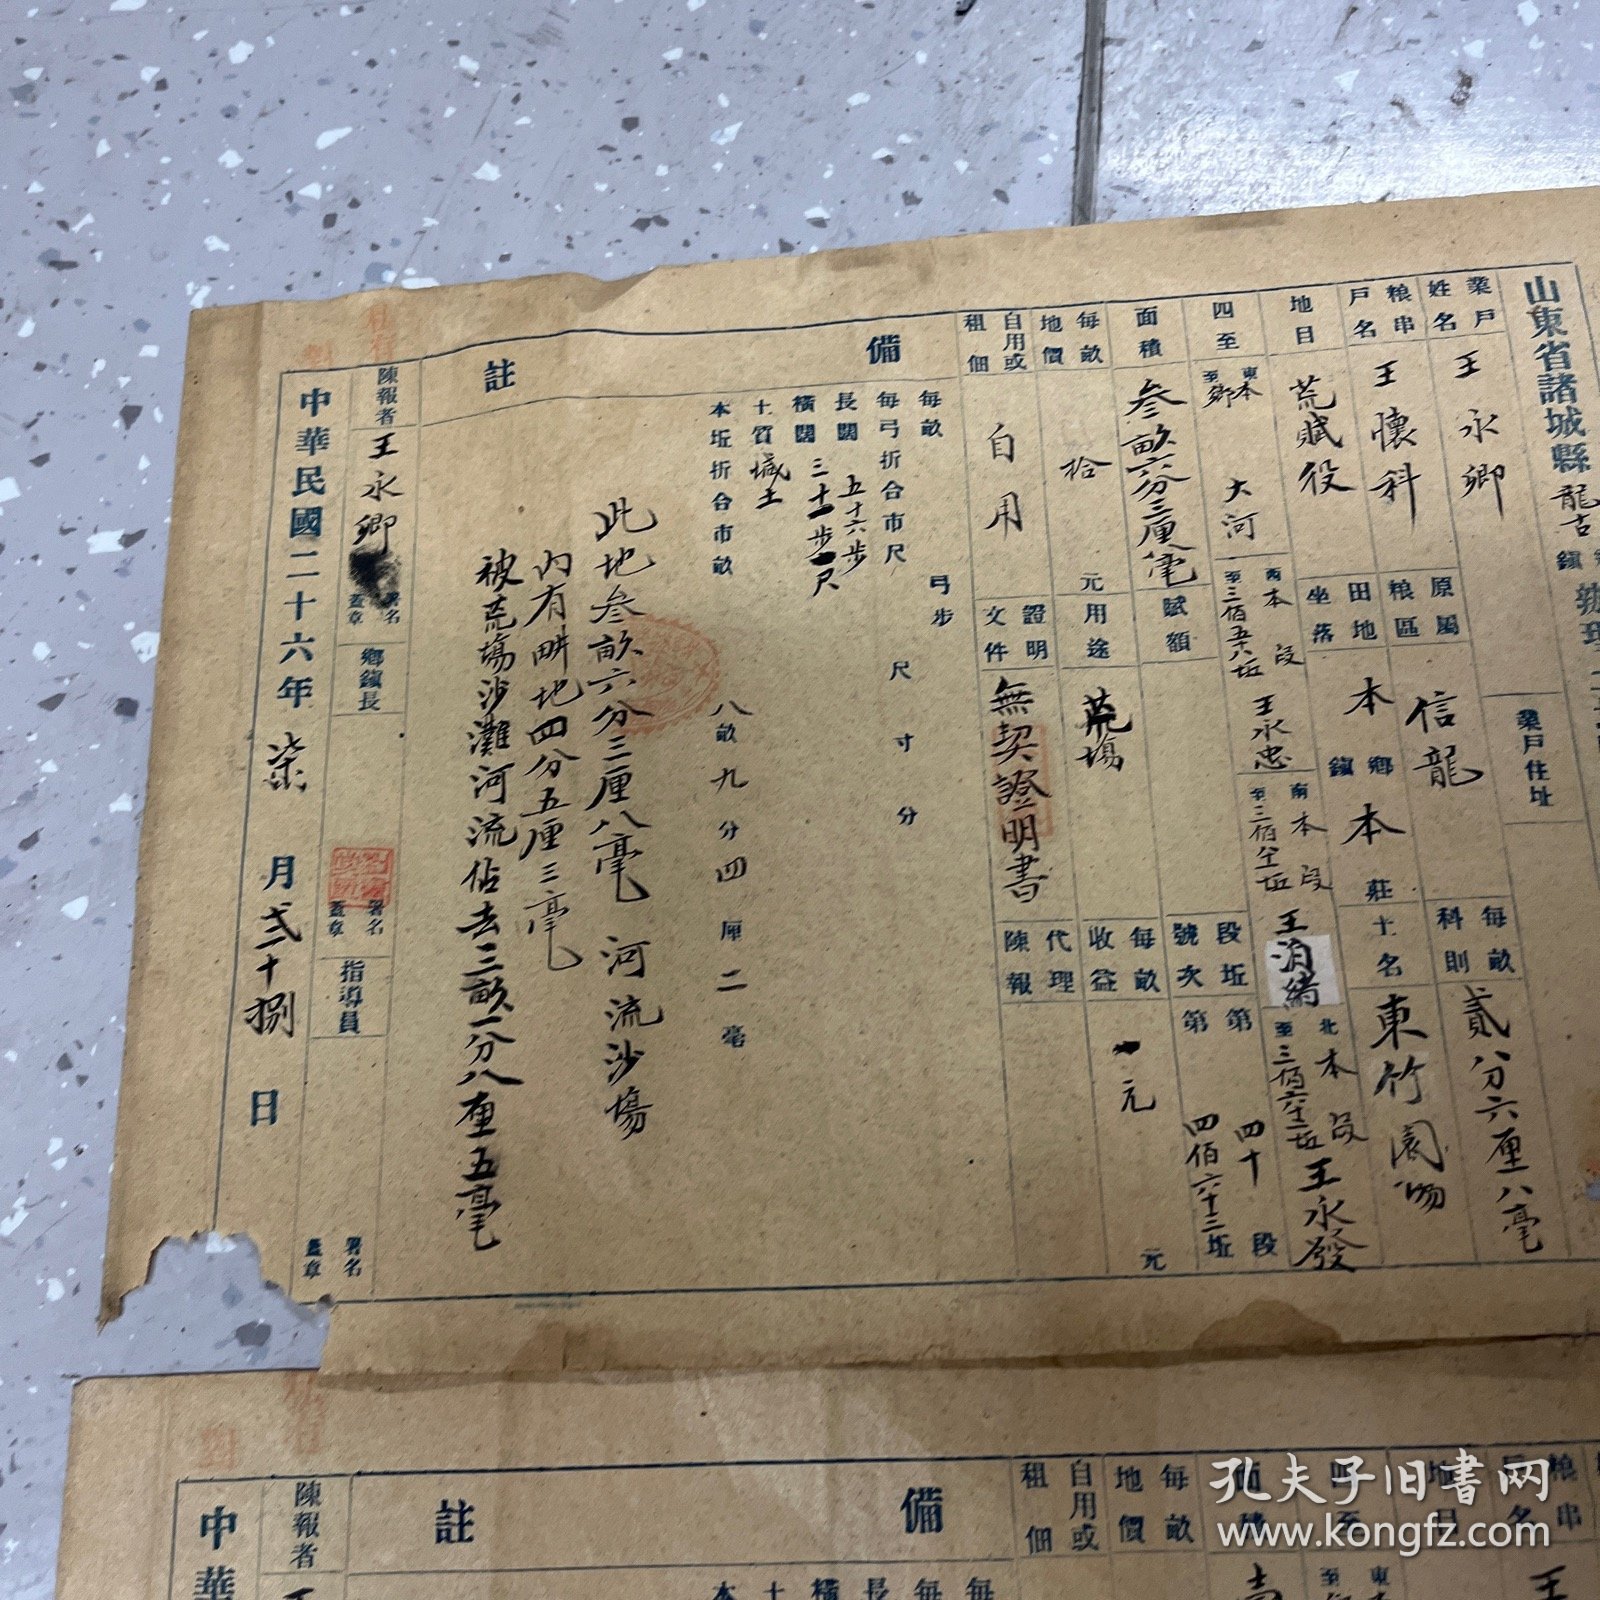 山東省諸城縣龍古
業戶姓名 王永卿 業戶住址
粮串戶名 王懷科 原屬粮區 信龍 每畝科則 貳分六厘八毫
地目 荒賦役 田地坐落 本鄉鎮本莊 土名 東竹園
四至 東至本鄉大河 西至本段三佰五十八坵王永忠 南至本段 王 北至本段三佰六十二坵王永發
面積 叁畝六分三厘八毫 賦額 段坵號次 第四十段 第四佰六十三坵
每畝地價 拾元 用途 荒塲 每畝收益 一元 元
自用或租佃 自用 證明文件 無契證明書 代理陳報
備註
每畝 弓步
每弓折合市尺 尺寸分
長闊 五十六步
橫闊 三十一步 尺
土質 堿土
本坵折合市畝 八畝九分四厘二毫
此地叁畝六分三厘八毫 河流沙塲
內有畊地四分五厘三毫
被荒塲沙灘河流佔去三畝一分八厘五毫
陳報者 王永卿 署名蓋章 鄉鎮長 署名蓋章 指導員 署名蓋章
中華民國二十六年柒月弍十捌日
租佃 自用或 地價 每畝 面積 四至 地目 戶名 粮串
備註
陳報者
中華
孔夫子旧书网
www.kongfz.com